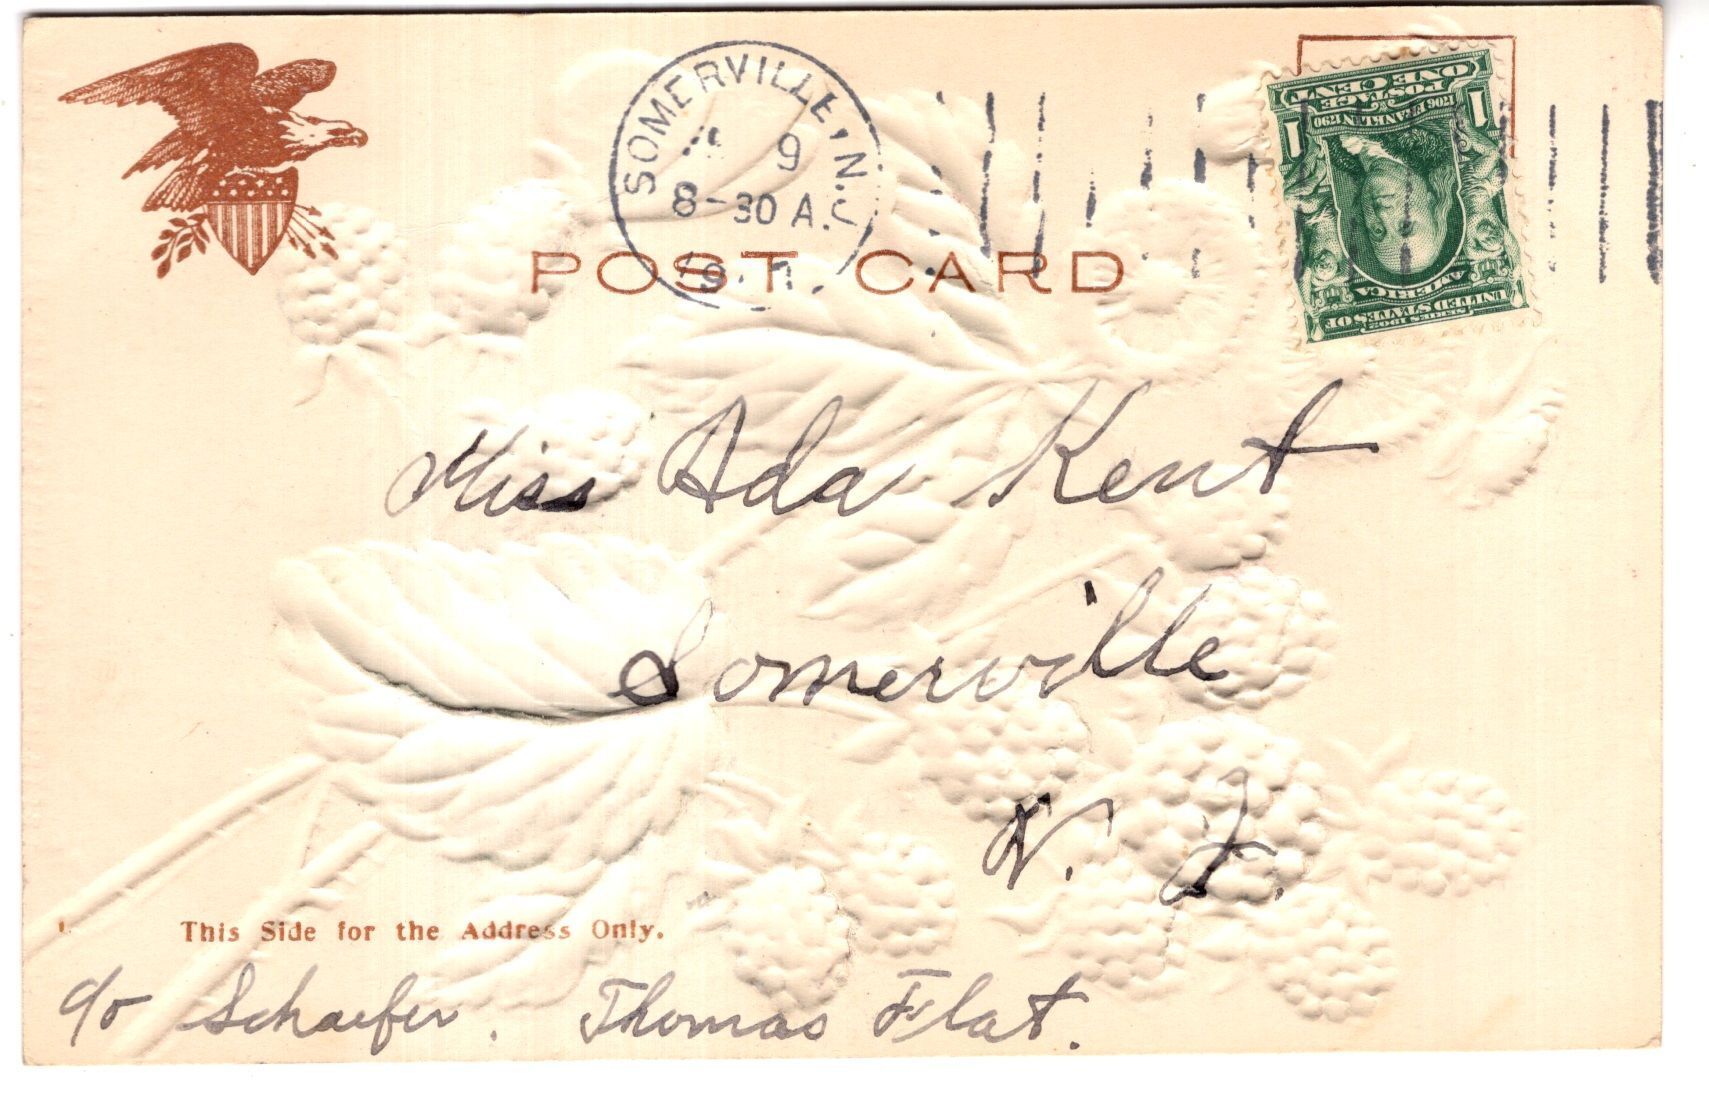 SOMERVILLE, N.J.
9
8-30 A.
POST CARD
ONE CENT
POSTAGE
1706 FRANKLIN 1790
1 1
AMERICA
UNITED STATES OF
SERIES 1902
Miss Ada Kent
Somerville
N. J.
This Side for the Address Only.
c/o Schaefer. Thomas Flat.